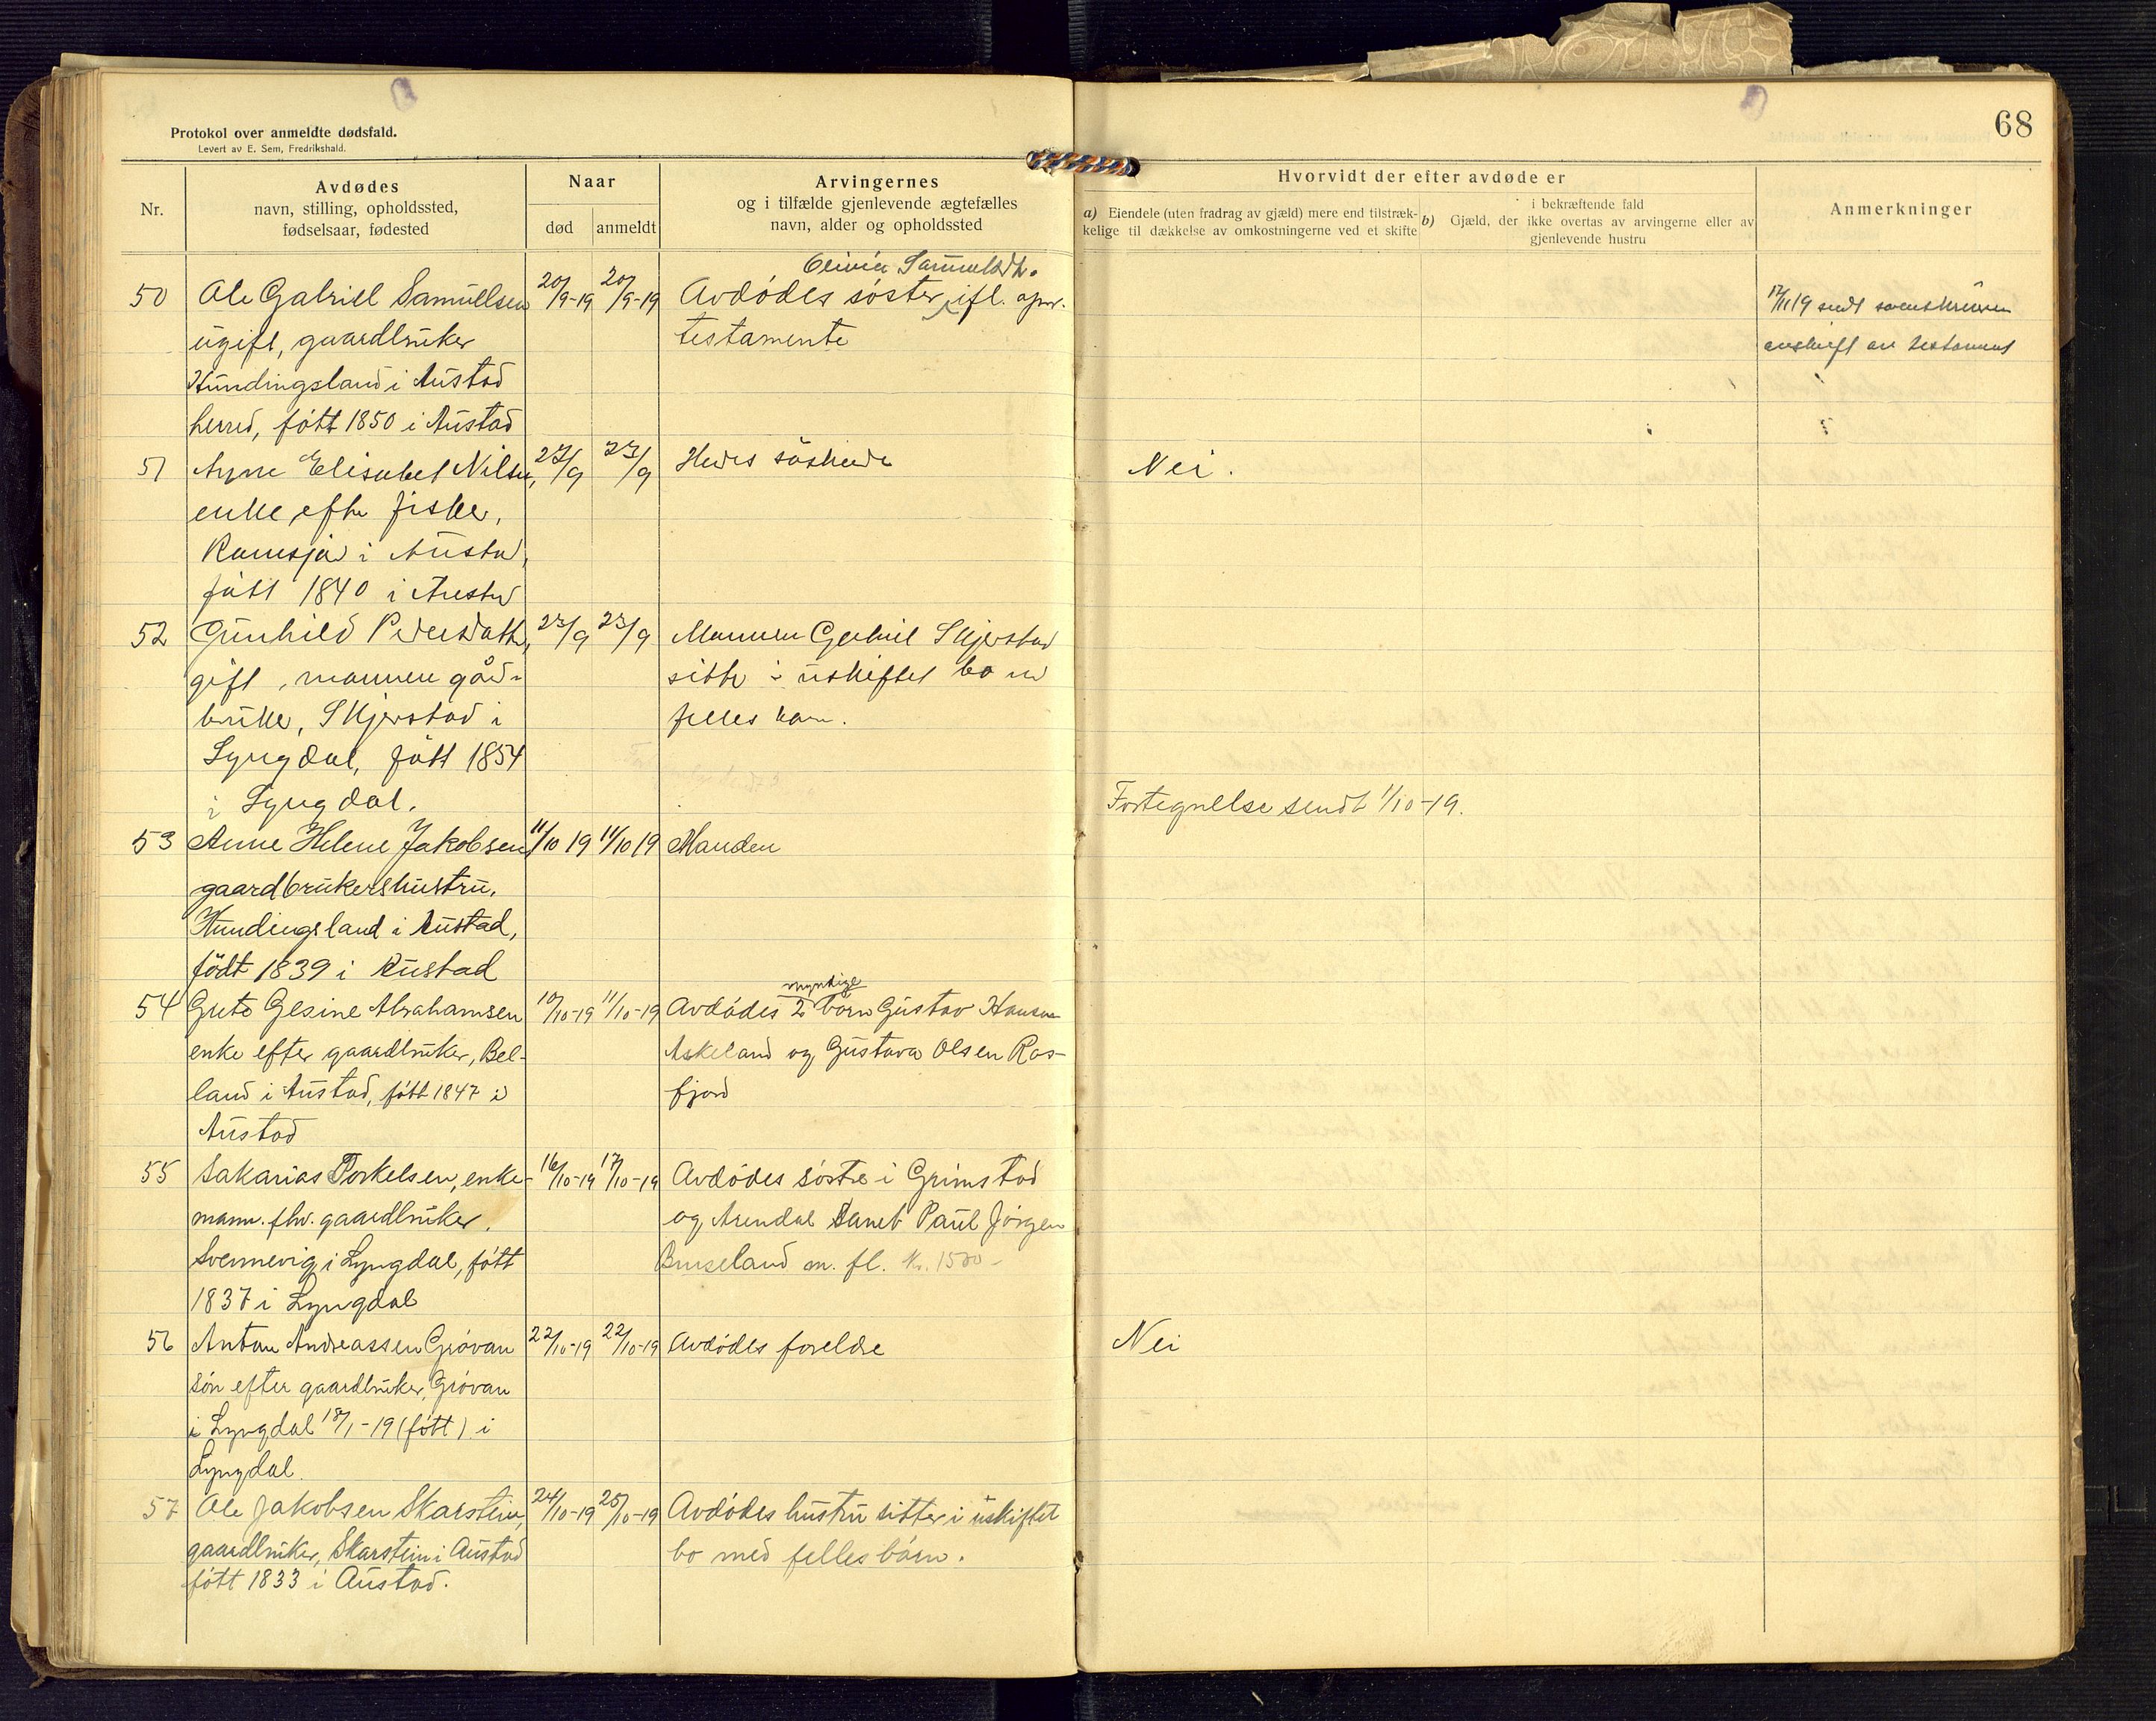 Protokol over anmeldte dødsfald.
Levert av E. Sem, Fredrikshald.
68
Nr.
Avdødes
navn, stilling, opholdssted,
fødselsaar, fødested
Naar
død
anmeldt
Arvingernes
og i tilfælde gjenlevende ægtefælles
navn, alder og opholdssted
Hvorvidt der efter avdøde er
a) Eiendele (uten fradrag av gjæld) mere end tilstræk-
kelige til dækkelse av omkostningerne ved et skifte
i bekræftende fald
b) Gjæld, der ikke overtas av arvingerne eller av
gjenlevende hustru
Anmerkninger
50 Ole Gabriel Samuelsen 20/9-19 20/9-19
ugift, gaardbruker
Hundingsland i Austad
herred, født 1850 i Austad
Olivia Samuelsdt.
Avdødes søster, ifl.
testamente
17/11 19 sendt
avskrift av testament
51 Anne Elisabet Nilsen, 23/9 23/9 Hendes søskende Nei.
enke efter fisker,
i Austad,
født 1840 i Austad
52 Gunhild Pedersdatter, 23/9 23/9 Mannen Skjerstad
gift, mannen gård-
bruker, Skjerstad i
Lyngdal, født 1854
i Lyngdal.
sitter i uskiftet bo m
felles barn.
Fortegnelse sendt 1/10-19.
53 Anne Helene Jakobsen 11/10 19 11/10 19 Manden
gaardbrukershustru,
Hundingsland i Austad,
födt 1839 i Austad
54 Grete Gesine Abrahamsen 10/10-19 11/10-19
enke efter gaardbruker, Bel-
land i Austad, født 1847 i
Austad
myndige
Avdødes 2 børn Gustav Hansen
Askeland og Gustava Olsen Ros-
fjord
55 Sakarias Torkelsen, enke- 16/10-19 17/10-19
mann. fhv. gaardbruker.
Svennevig i Lyngdal, født
1837 i Lyngdal
Avdødes søstre i Grimstad
og Arendal samt Paul Jørgen
Buseland m. fl. Kr. 1500-
56 Anton Andreassen Grøvan 22/10-19 22/10-19 Avdødes foreldre Nei
søn efter gaardbruker, Grøvan
i Lyngdal 18/1-19 (født) i
Lyngdal.
57 Ole Jakobsen Skarstein, 24/10-19 25/10-19
gaardbruker, Skarstein i Austad
født 1833 i Austad.
Avdødes hustru sitter i uskiftet
bo med felles børn.